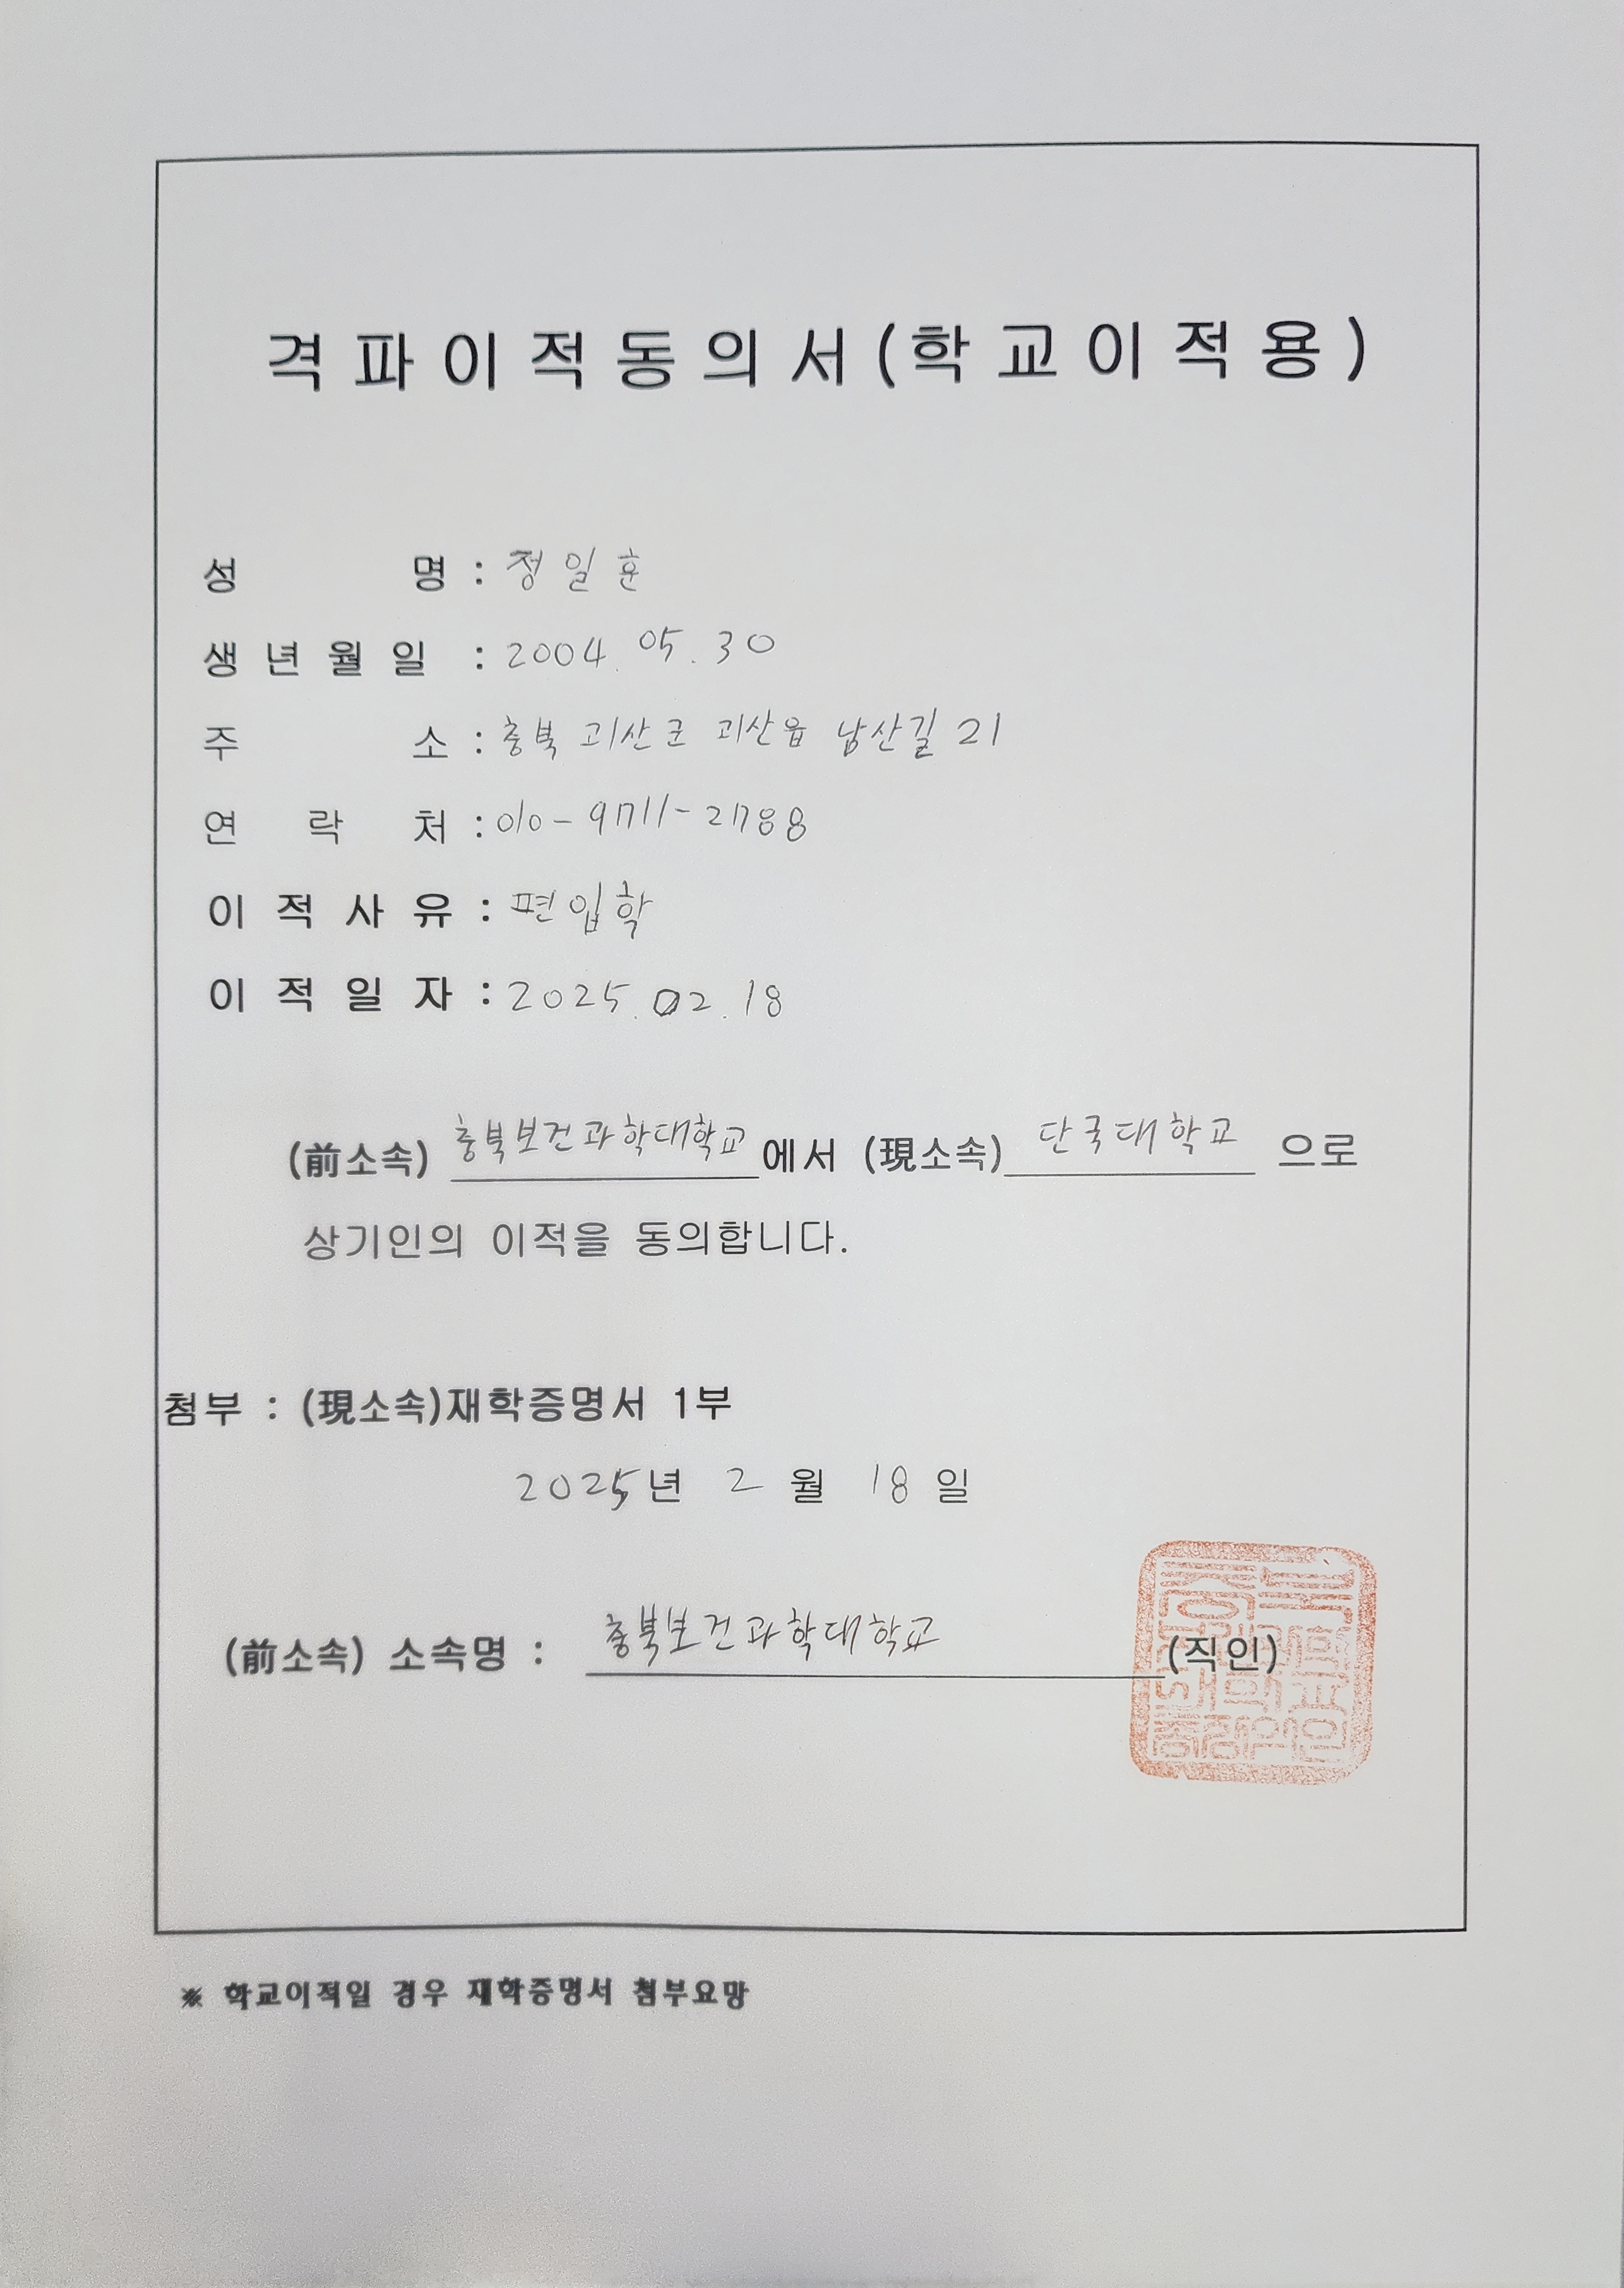 격파이적동의서(학교이적용)
성 명 : 정일훈
생년월일 : 2004. 05. 30
주 소 : 충북 괴산군 괴산읍 남산길 21
연 락 처 : 010-9711-2788
이적사유 : 편입학
이적일자 : 2025. 02. 18
(前소속) 충북보건과학대학교에서 (現소속) 단국대학교 으로
상기인의 이적을 동의합니다.
첨부 : (現소속)재학증명서 1부
2025년 2월 18일
(前소속) 소속명 : 충북보건과학대학교 (직인)
※ 학교이적일 경우 재학증명서 첨부요망